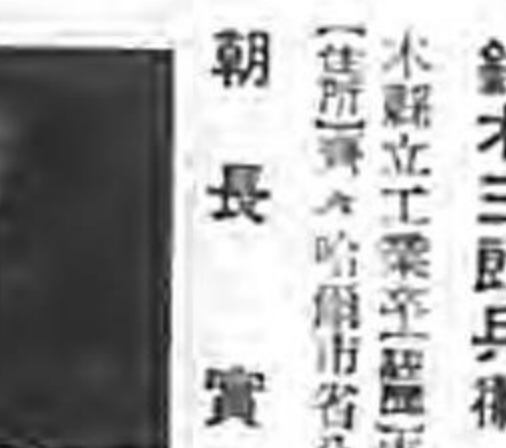 木三郎兵衛
木縣立工業卒【經歷】
【住所】齊々哈爾市省公
朝長實